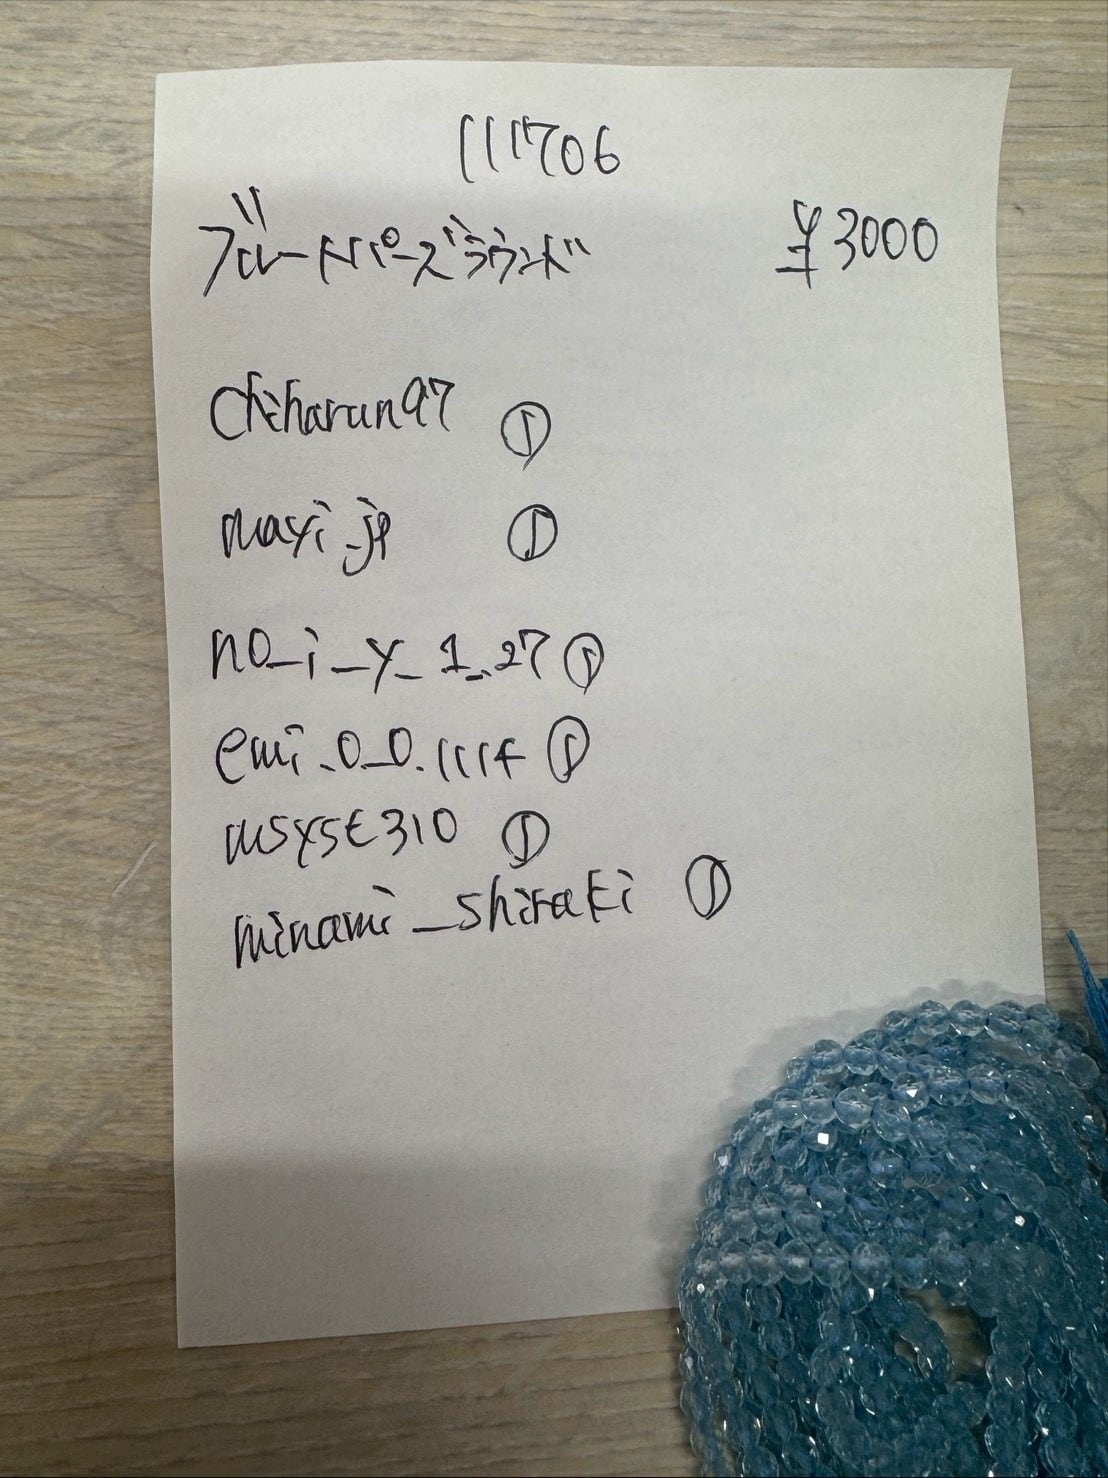 111706
ブルートパーズラウンド ¥3000
chiharun97 ①
mayi_jp ①
no_i_y_1_27 ①
emi.0_0.1114 ①
msyst310 ①
minami_shiraki ①